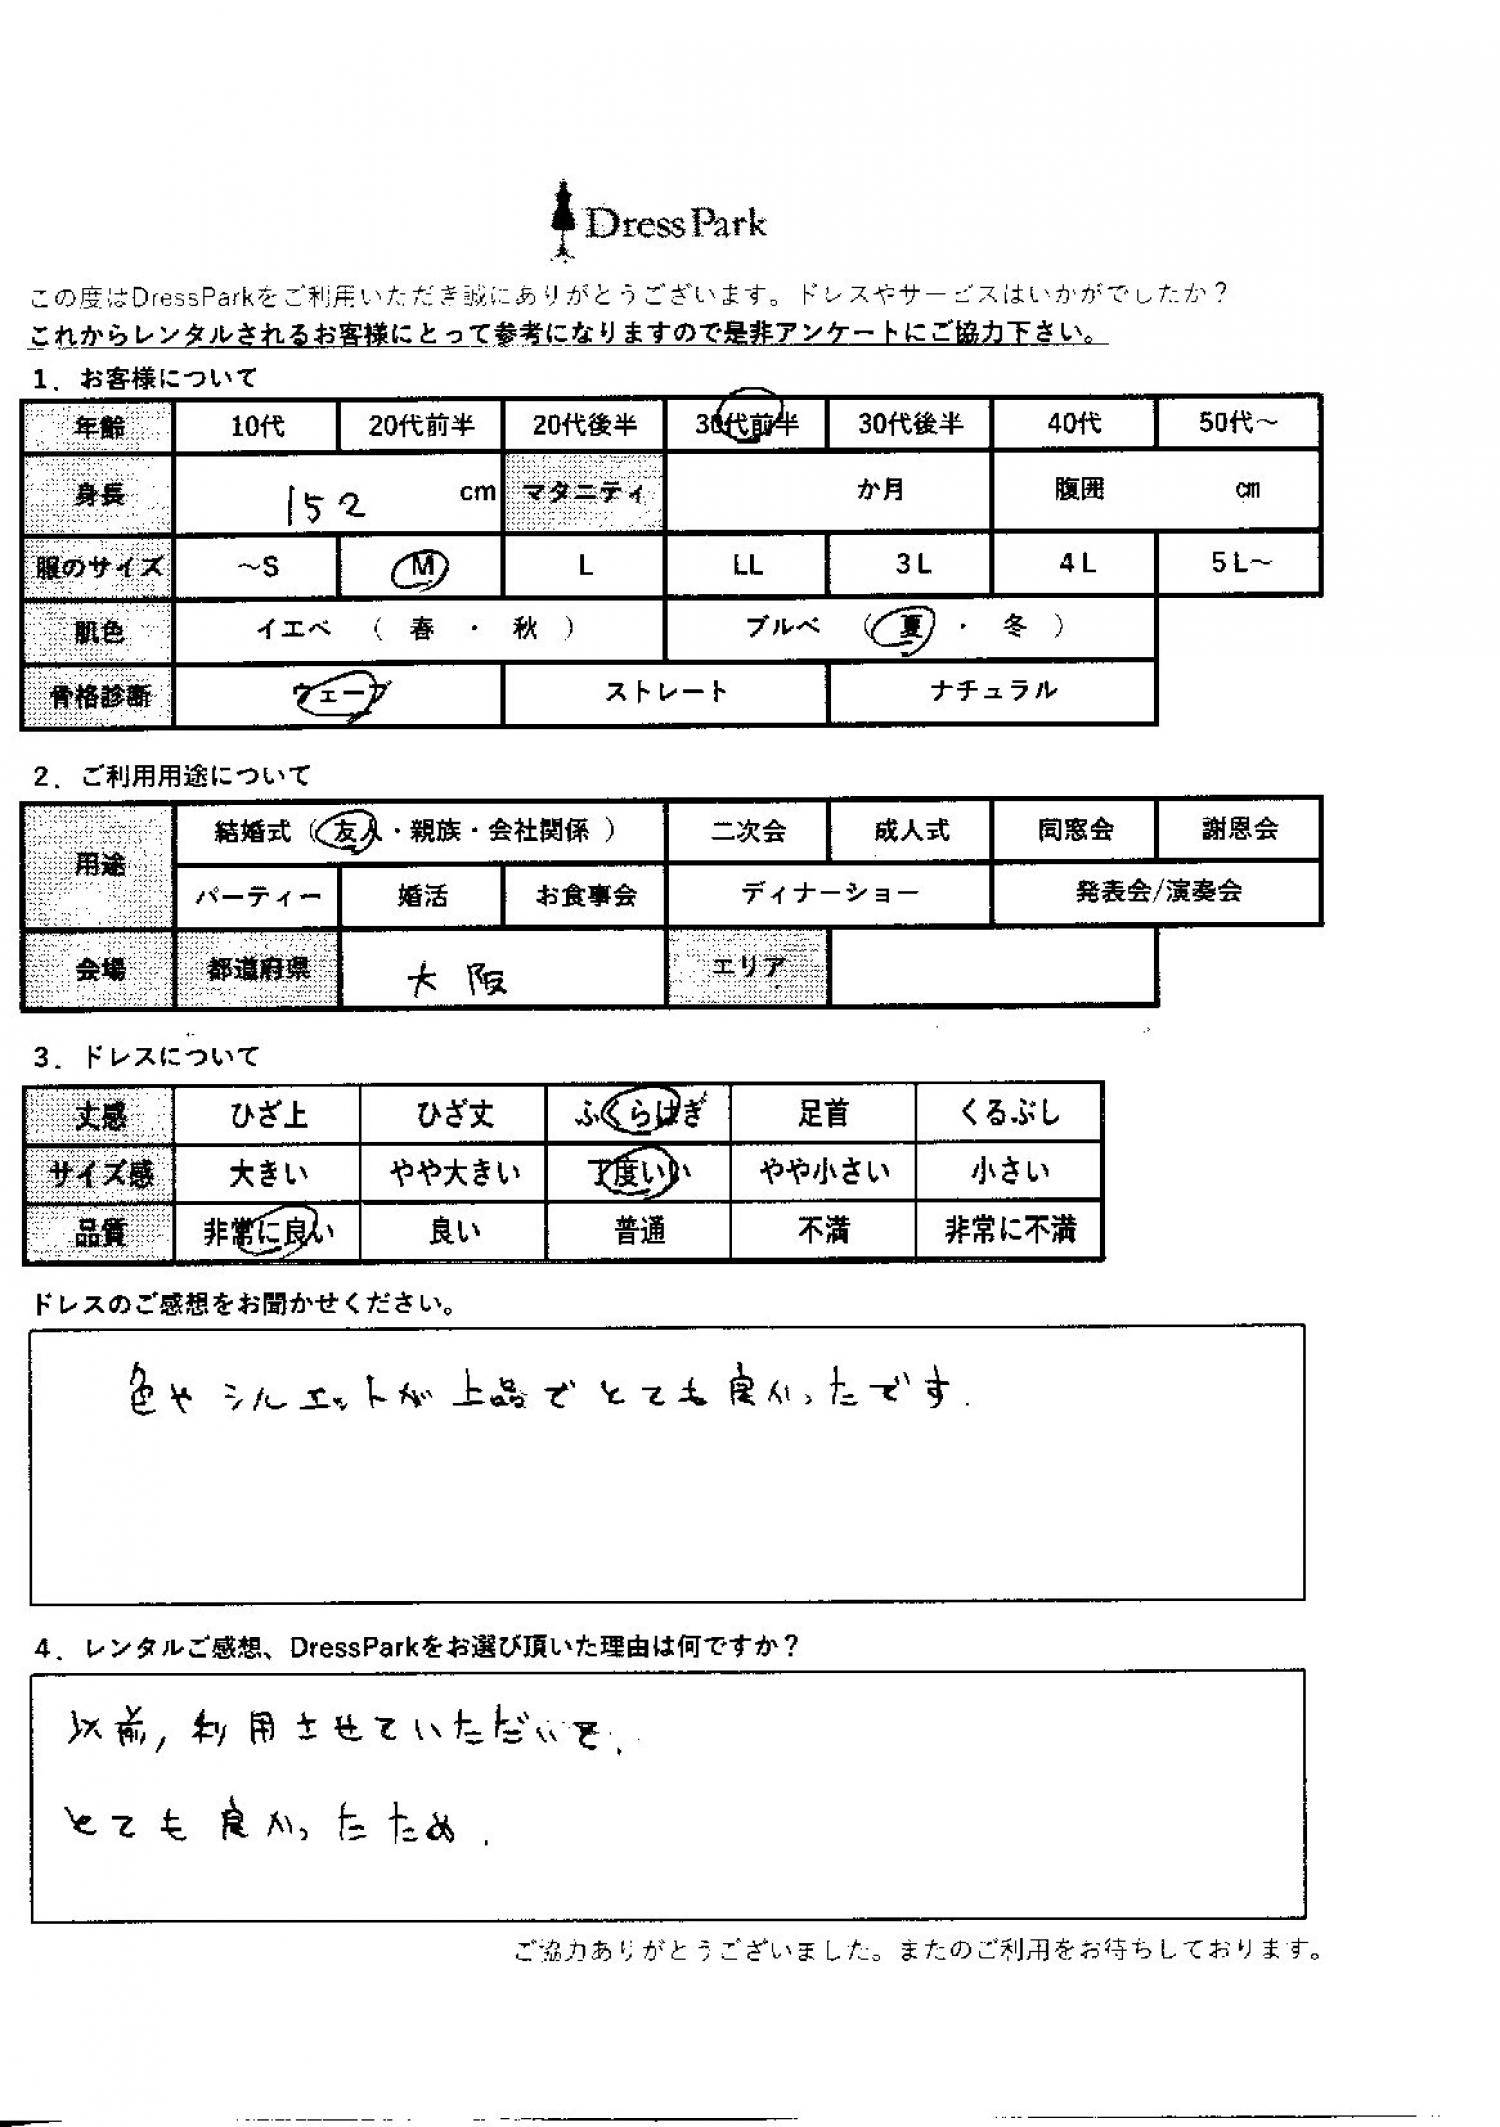 DressPark
この度はDressParkをご利用いただき誠にありがとうございます。ドレスやサービスはいかがでしたか？
これからレンタルされるお客様にとって参考になりますので是非アンケートにご協力下さい。
1．お客様について
年齢 10代 20代前半 20代後半 30代前半 30代後半 40代 50代～
身長 152 cm マタニティ か月 腹囲 cm
服のサイズ ～S M L LL 3L 4L 5L～
肌色 イエベ （ 春 ・ 秋 ） ブルベ （ 夏 ・ 冬 ）
骨格診断 ウェーブ ストレート ナチュラル
2．ご利用用途について
用途 結婚式（ 友人・親族・会社関係 ） 二次会 成人式 同窓会 謝恩会
パーティー 婚活 お食事会 ディナーショー 発表会/演奏会
会場 都道府県 大阪 エリア
3．ドレスについて
丈感 ひざ上 ひざ丈 ふくらはぎ 足首 くるぶし
サイズ感 大きい やや大きい 丁度いい やや小さい 小さい
品質 非常に良い 良い 普通 不満 非常に不満
ドレスのご感想をお聞かせください。
色やシルエットが上品でとても良かったです.
4．レンタルご感想、DressParkをお選び頂いた理由は何ですか？
以前, 利用させていただいて.
とても良かったため.
ご協力ありがとうございました。またのご利用をお待ちしております。